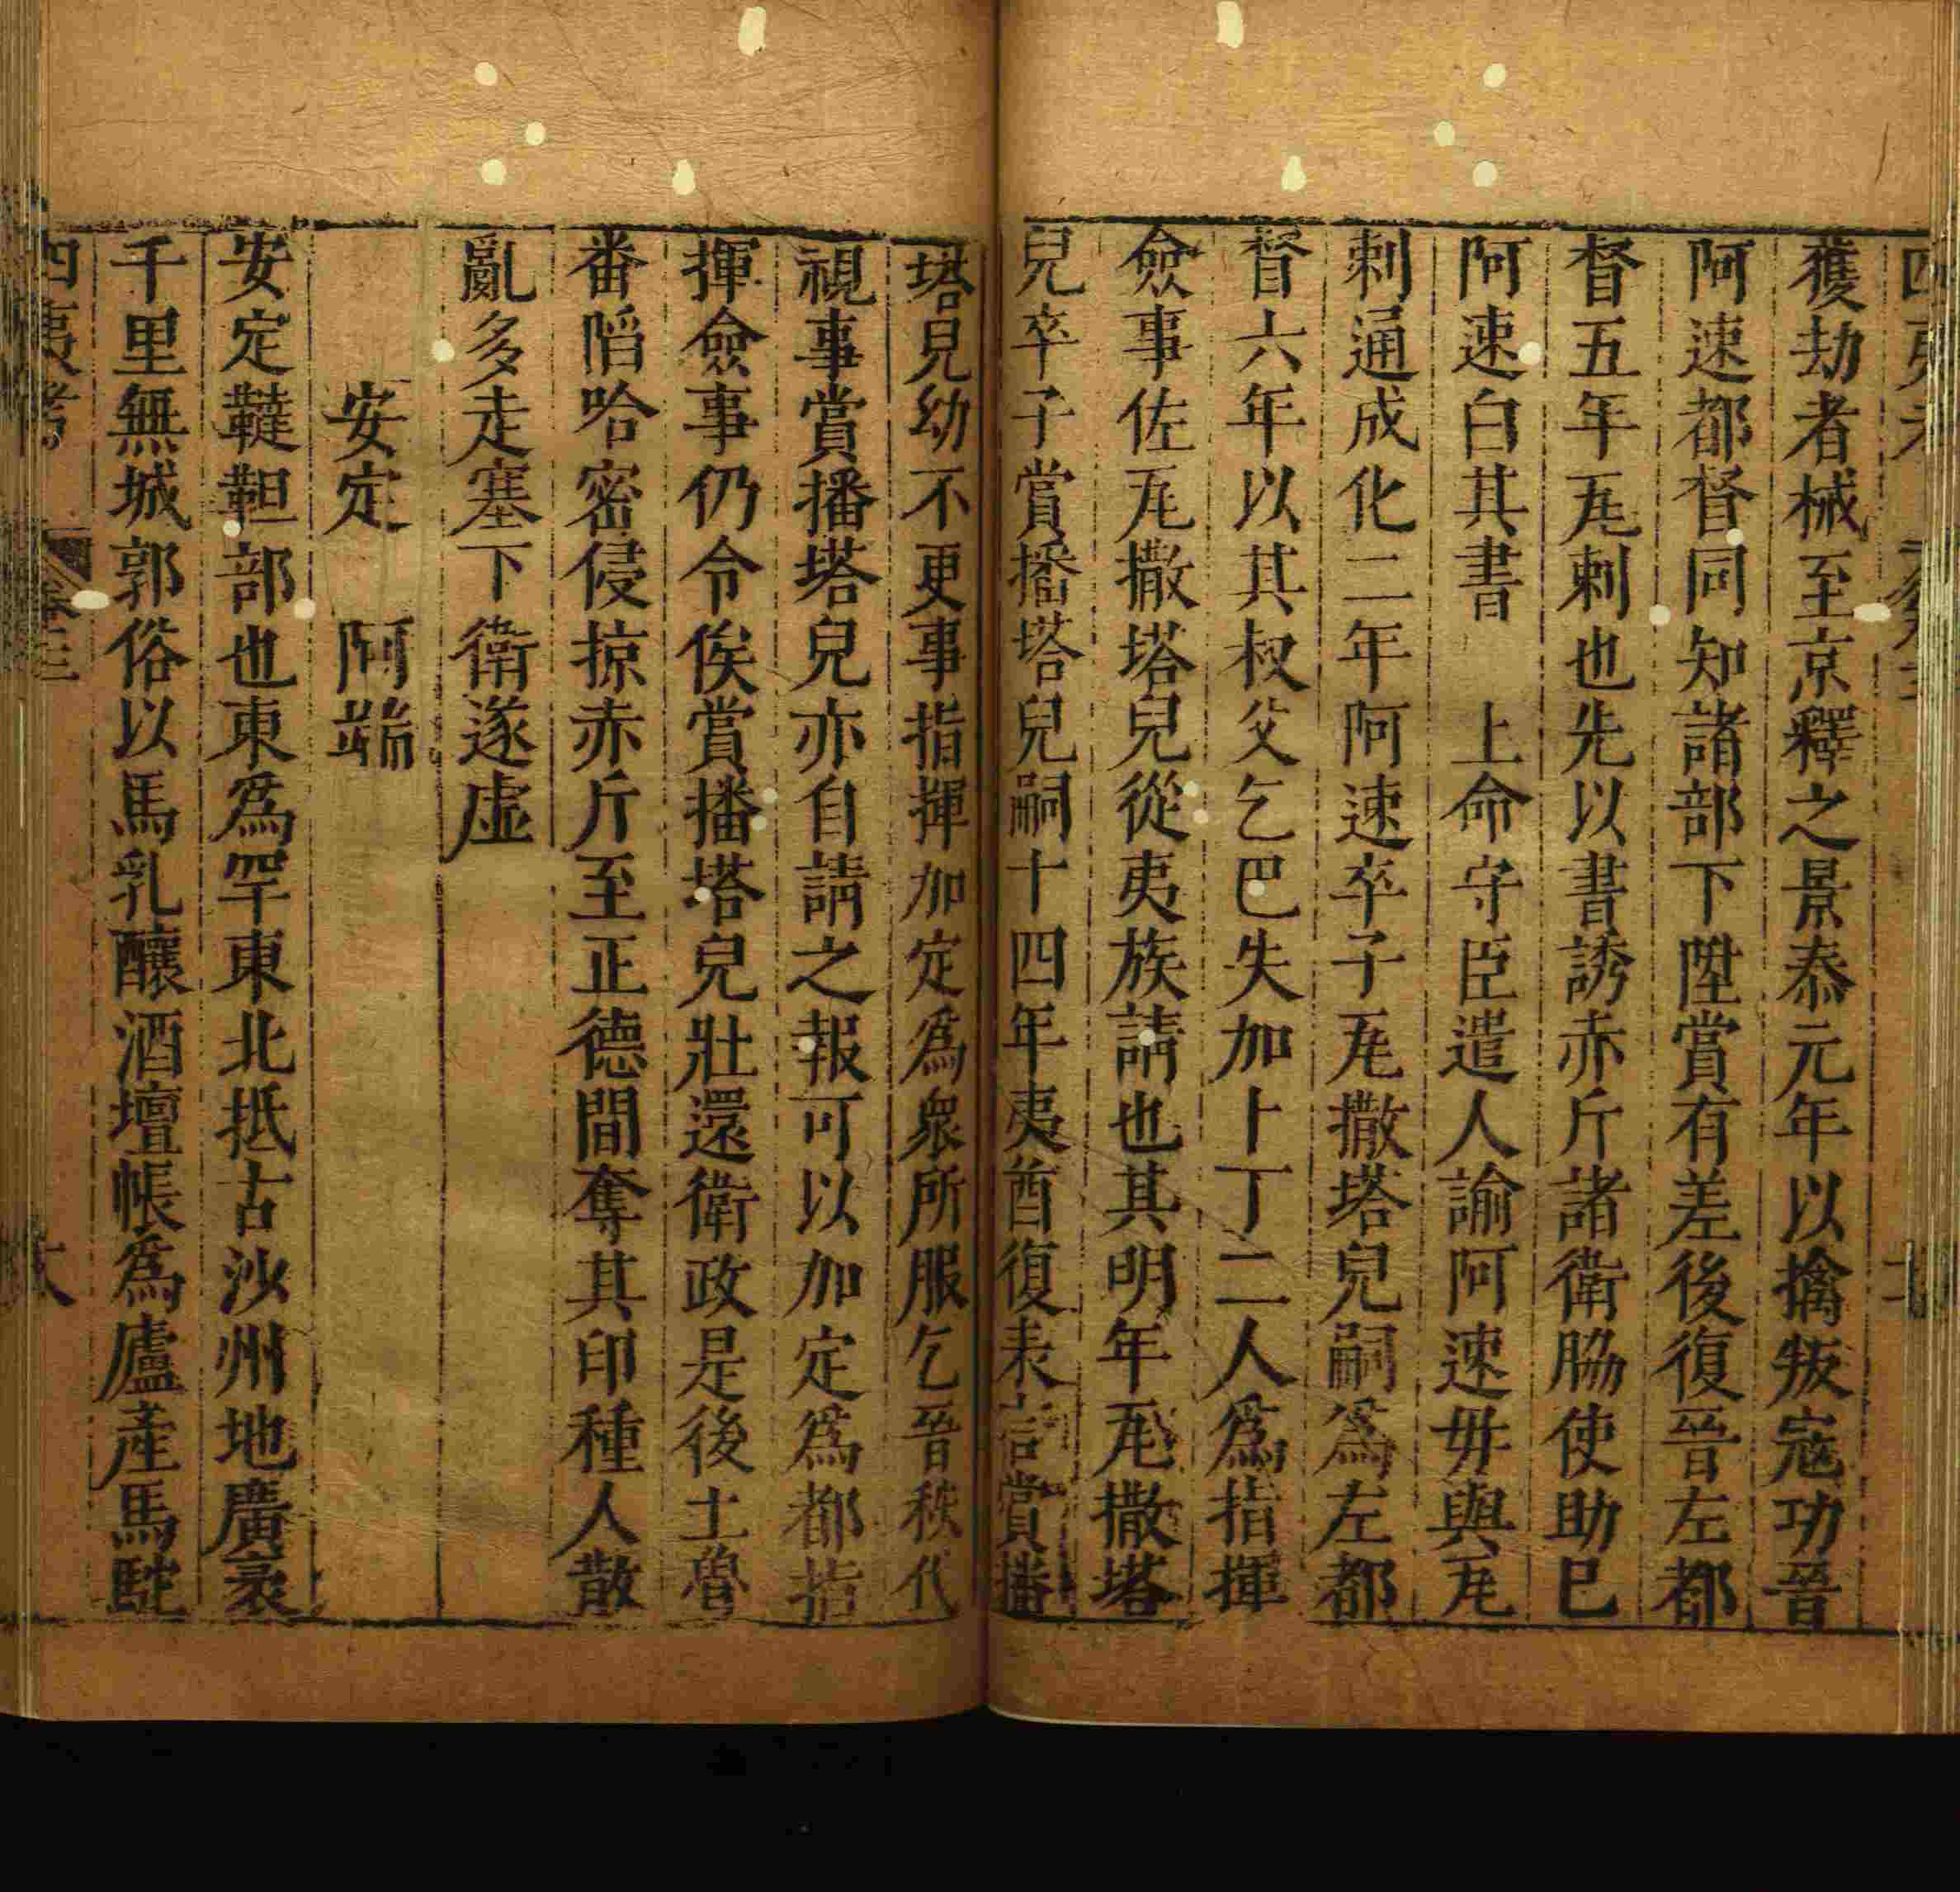 獲劫者械至京釋之景泰元年以擒叛寇功晉
阿速都督同知諸部下陞賞有差後復晉左都
督五年瓦剌也先以書誘赤斤諸衛脇使助已
阿速白其書　上命守臣遣人諭阿速毋與瓦
剌通成化二年阿速卒子瓦撒塔兒嗣爲左都
督六年以其叔父乞巴失加卜丁二人爲指揮
僉事佐瓦撒塔兒從夷族請也其明年瓦撒塔
兒卒子賞播塔兒嗣十四年夷酋復來言賞播
塔兒幼不更事指揮加定爲衆所服乞晉秩代
視事賞播塔兒亦自請之報可以加定爲都指
揮僉事仍令俟賞播塔兒壯還衛政是後土魯
番䧟哈密侵掠赤斤至正德間奪其印種人散
亂多走塞下衛遂虛
安定　阿端
安定韃靼部也東爲罕東北抵古沙州地廣袤
千里無城郭俗以馬乳釀酒壇帳爲廬產馬駝
四夷考　卷三　六